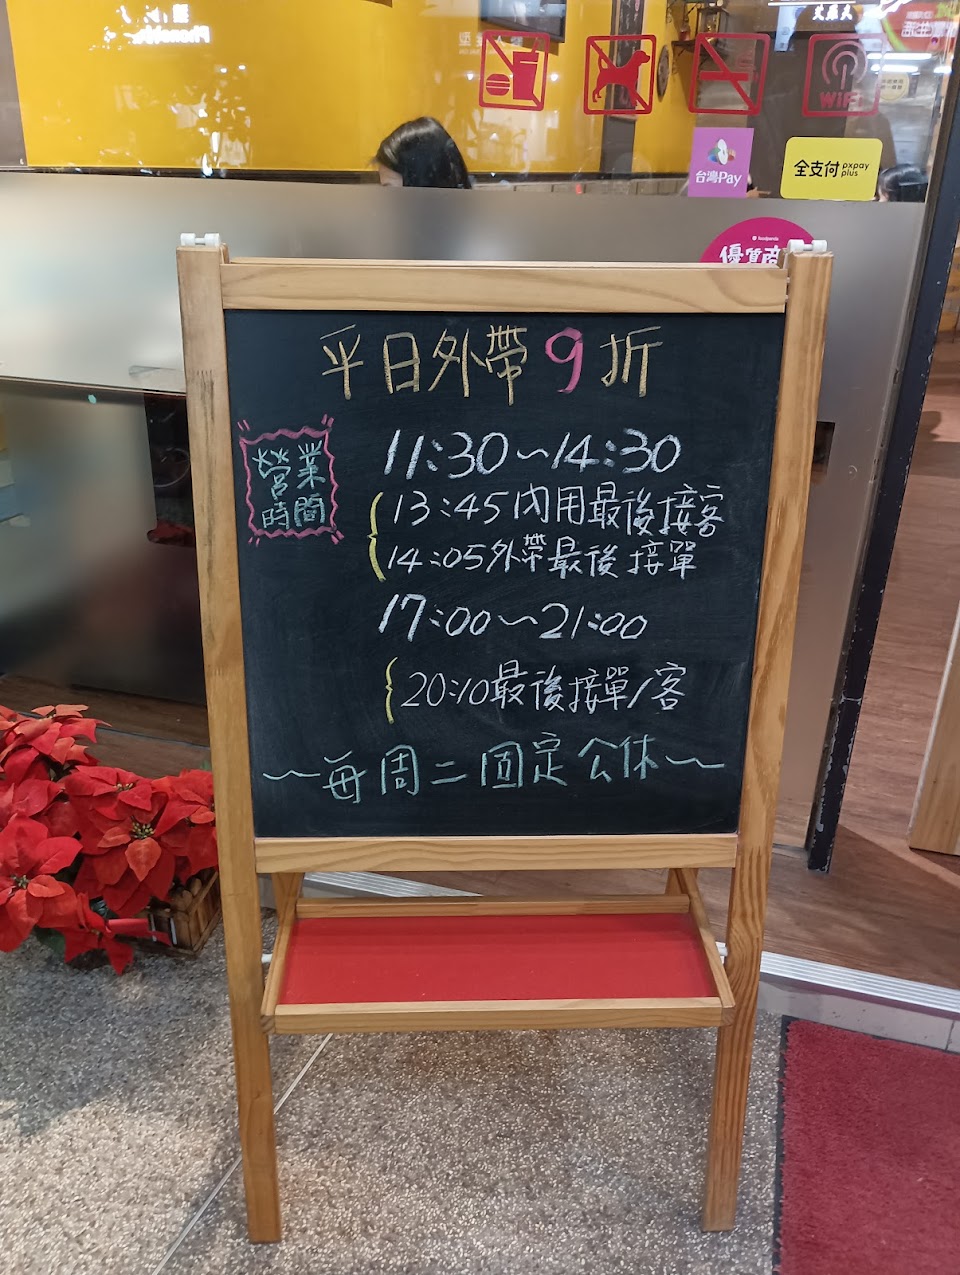 WiFi
台灣Pay
全支付 pxpay plus
foodpanda
優質商
平日外帶9折
營業時間
11:30~14:30
13:45內用最後接客
14:05外帶最後接單
17:00~21:00
20:10最後接單/客
~每周二固定公休~